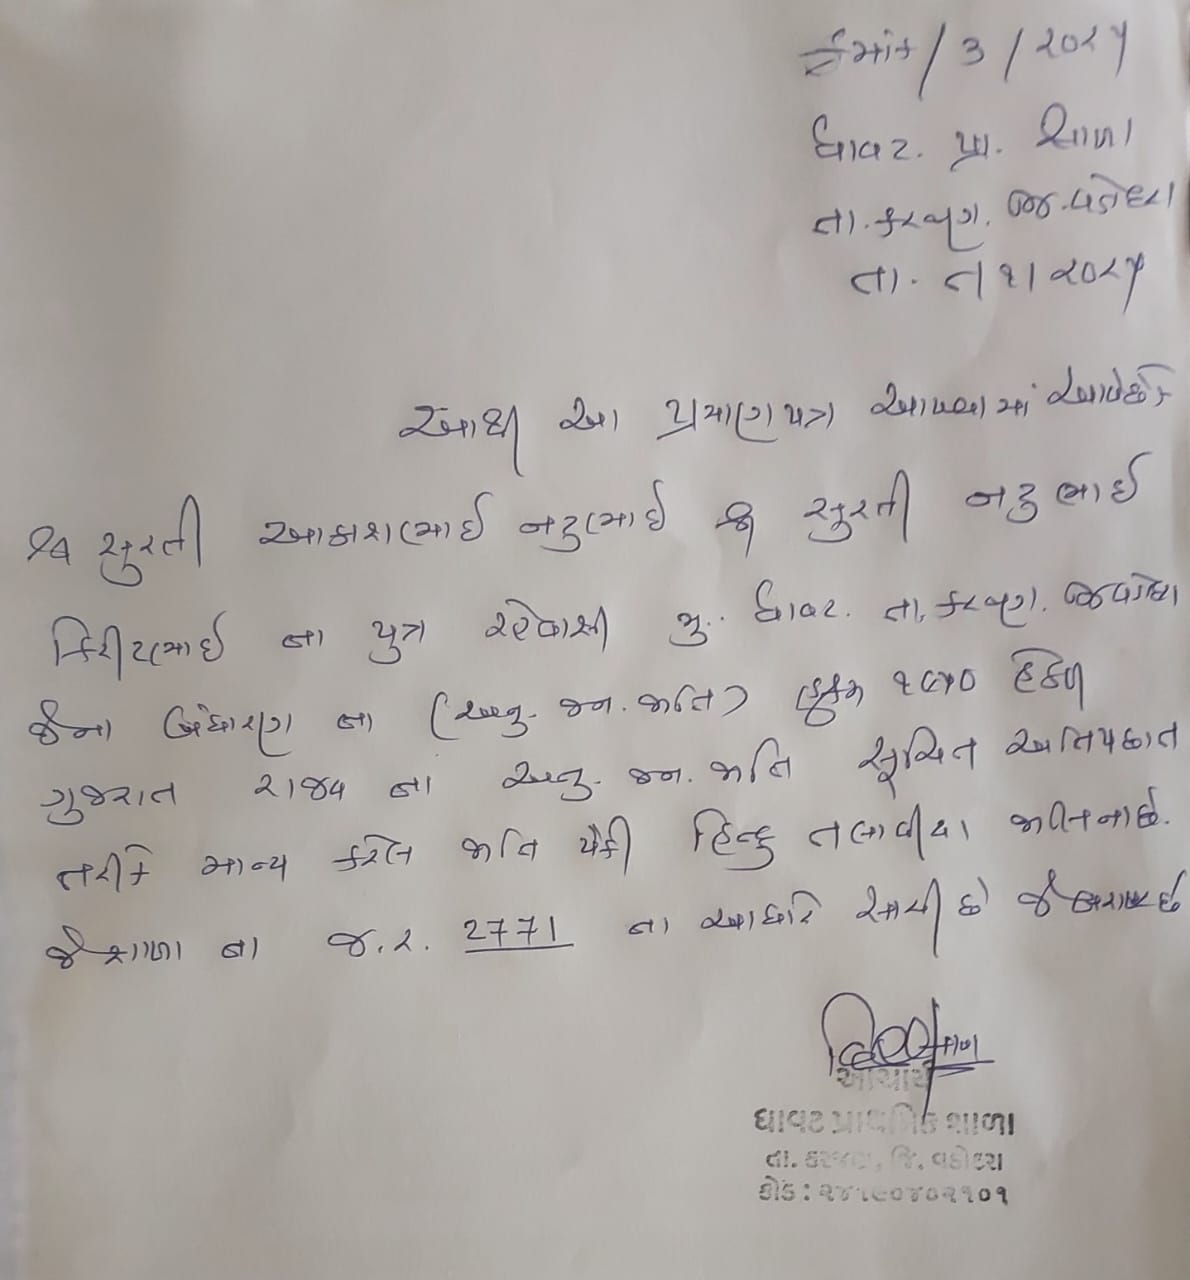 ક્રમાંક / ૩ / ૨૦૨૫
ધાવટ. પ્રા. શાળા
તા. કરજણ. જિ. વડોદરા
તા. ૧ / ૨૦૨૫
આથી આ પ્રમાણપત્ર આપવામાં આવે છે કે
સુરતી આકાશભાઈ નટુભાઈ એ સુરતી નટુભાઈ
કિરીટભાઈ ના પુત્ર રહેવાસી મુ. ધાવટ. તા. કરજણ. જિ વડોદરા
જેના બંધારણ ના (અનુ. જન. જાતિ) હુકમ ૧૯૫૦ હેઠળ
ગુજરાત રાજ્ય ના અનુ. જન. જાતિ સૂચિત
તરીકે માન્ય કરેલ જાતિ પૈકી હિન્દુ તલાવીયા જાતિના છે.
જે શાળા ના જ. ર. 2771 ના આધારે સાચી છે જે બરાબર છે
આચાર્ય
ધાવટ પ્રાથમિક શાળા
તા. કરજણ, જિ. વડોદરા
કોડ :